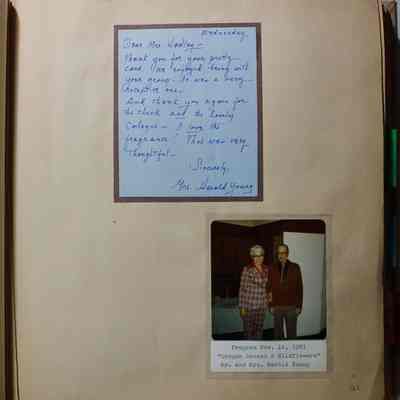 Wednesday
Dear Mrs.
Thank you for your pretty
card. I've enjoyed being with
your group. It was a very
receptive one.
And thank you again for
the check and the lovely
Cologne - I love the
fragrance! That was very
thoughtful -
Sincerely,
Mrs. Harold Young
Program Nov. 14, 1981
"Oregon Scenes & Wildflowers"
Mr. and Mrs. Harold Young